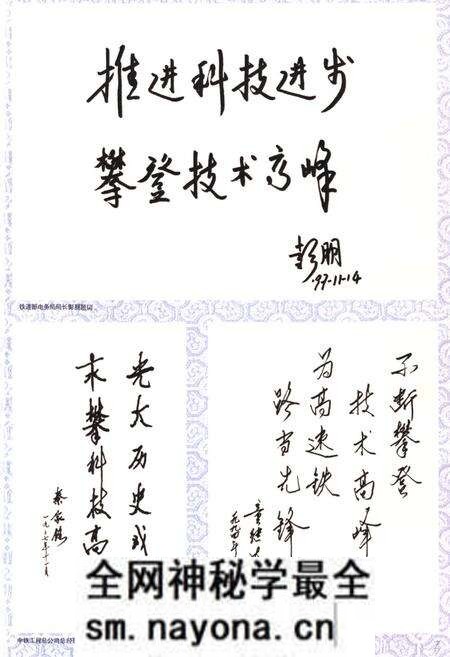 推进科技进步
攀登技术高峰
彭朋
97.11.14
铁道部电务局局长彭朋题词
不断攀登
技术高峰
为高速铁
路当先锋
光大历史成
求攀科技高
秦家铭
一九九七年十一月
中铁工程总公司总经理
全网神秘学最全
sm.nayona.cn